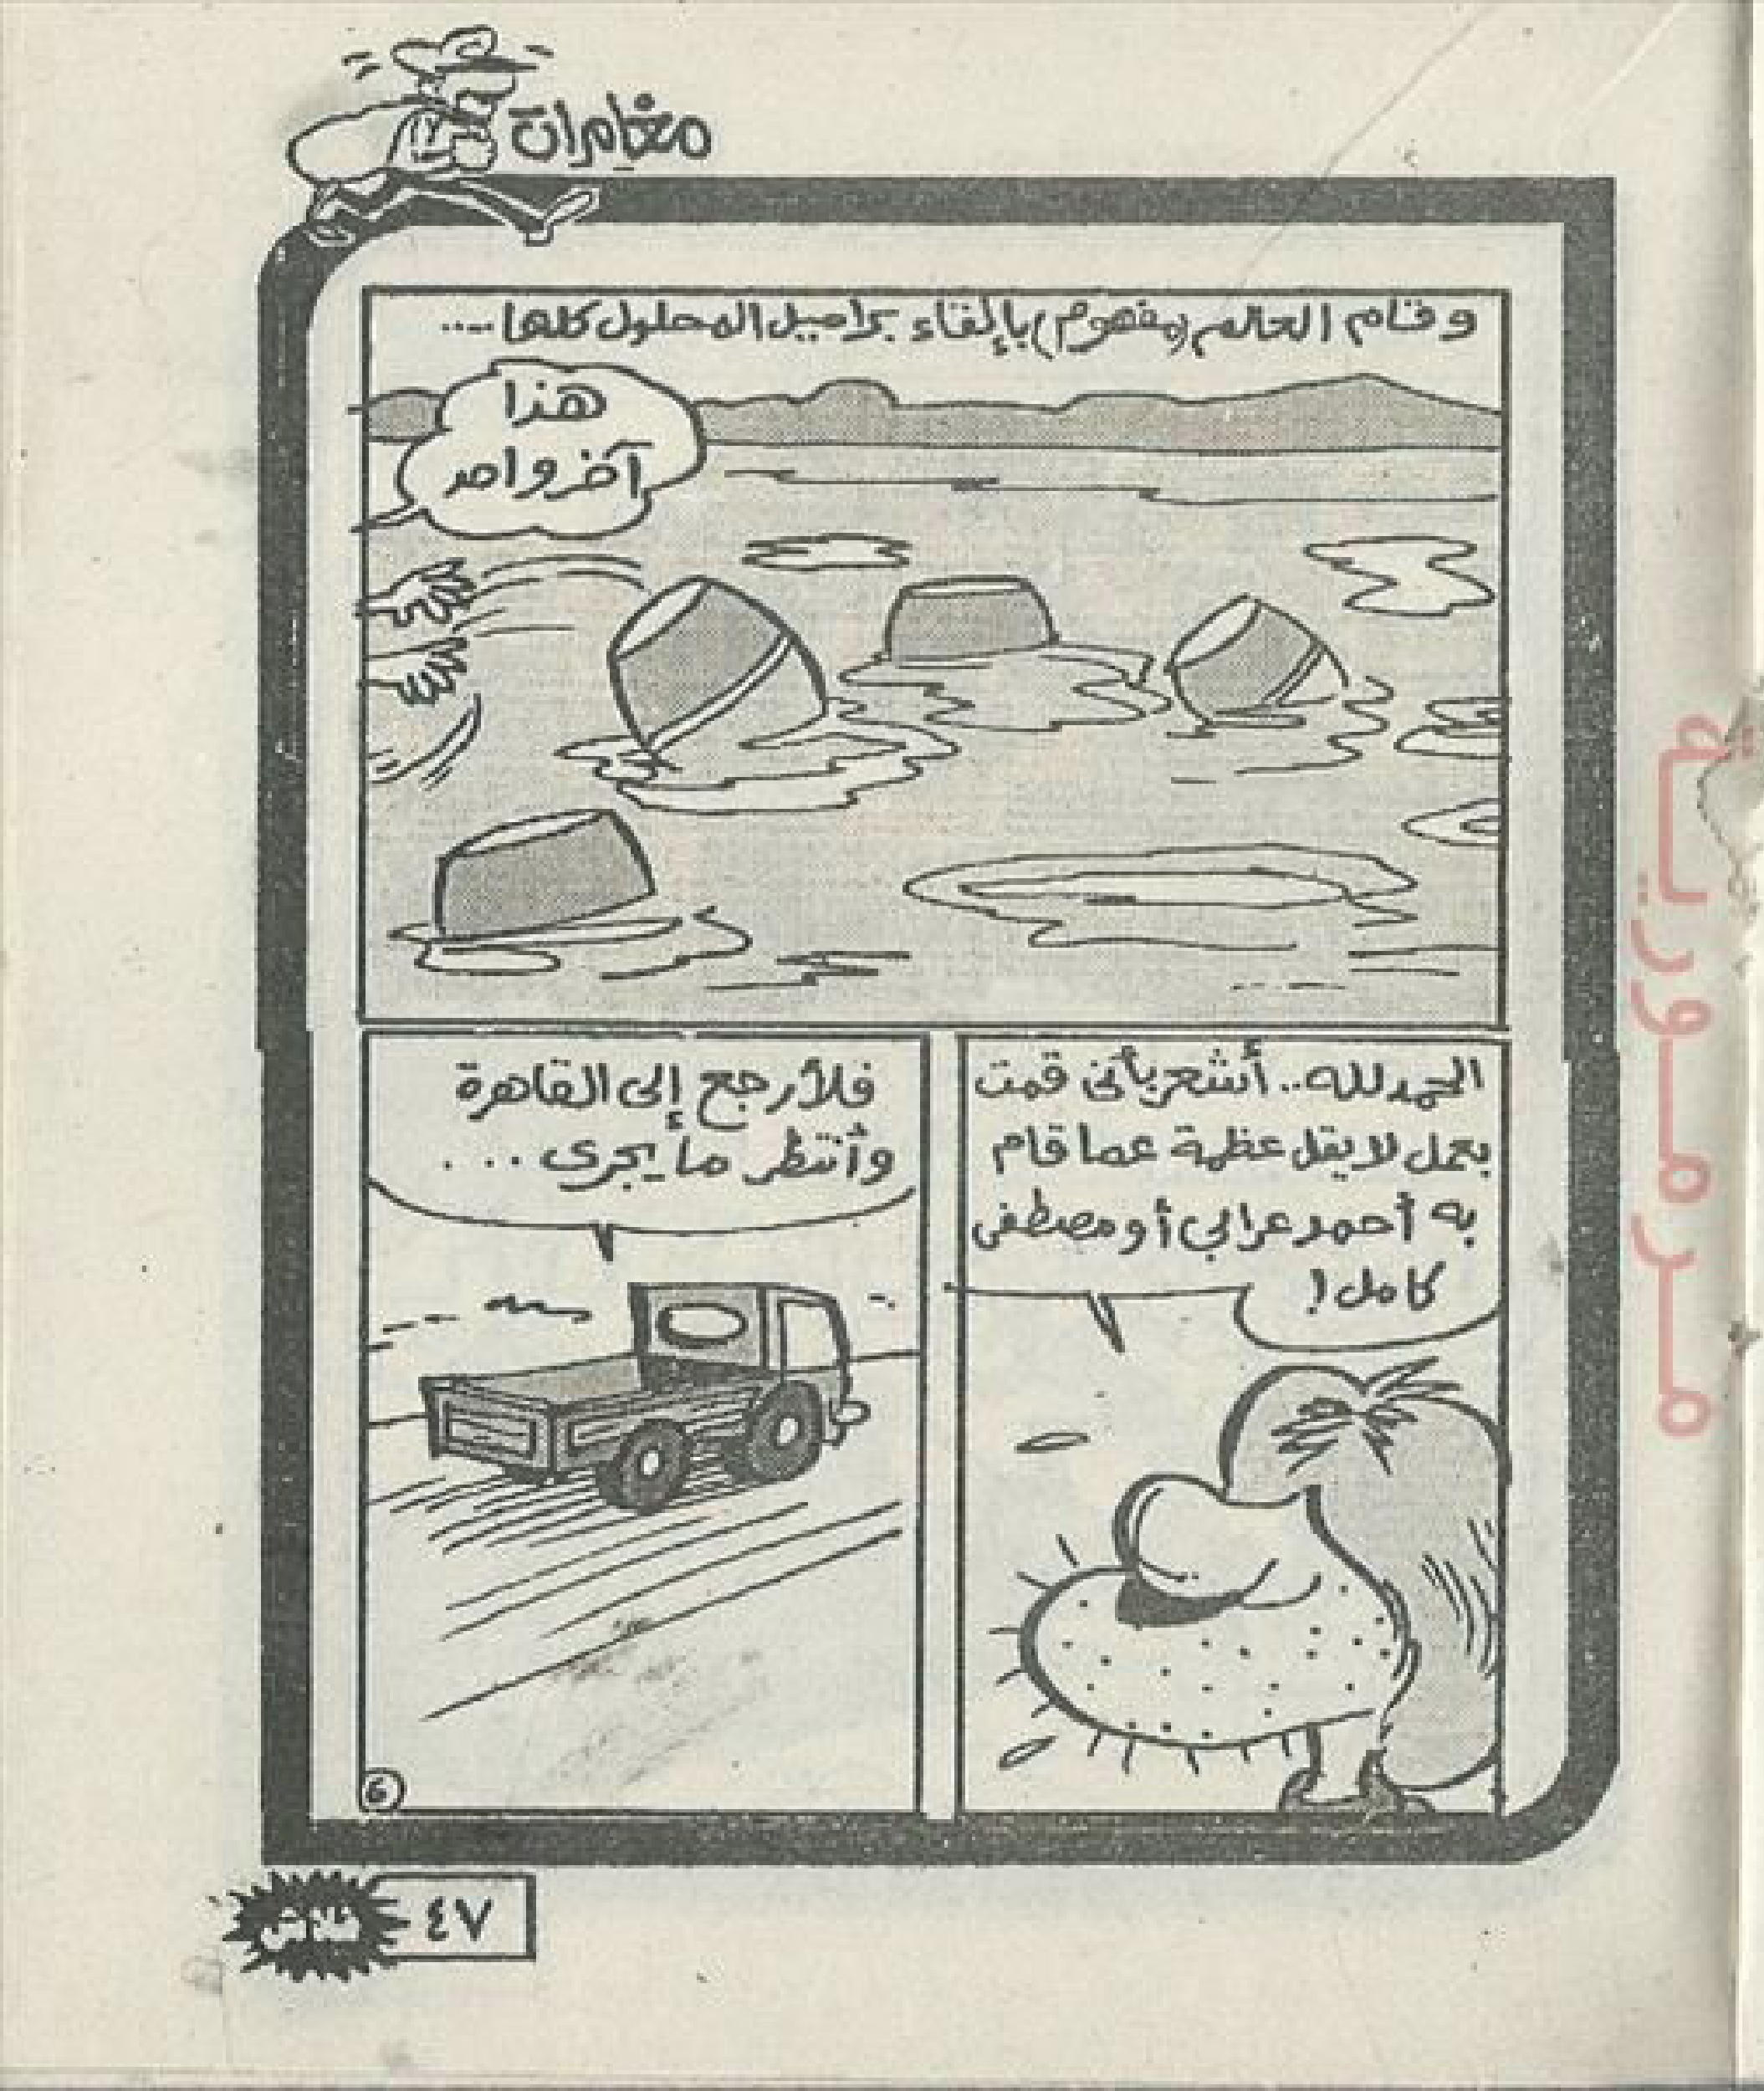 مغامرات
وقام العالم (مفهوم) بإلقاء براميل المحلول كلها ....
هذا
آخر واحد
الحمد لله.. أشعر بأنى قمت
بعمل لا يقل عظمة عما قام
به أحمد عرابي أو مصطفى
كامل!
فلأرجع إلى القاهرة
وأنتظر ما يجرى ...
6
٤٧
مرمورية